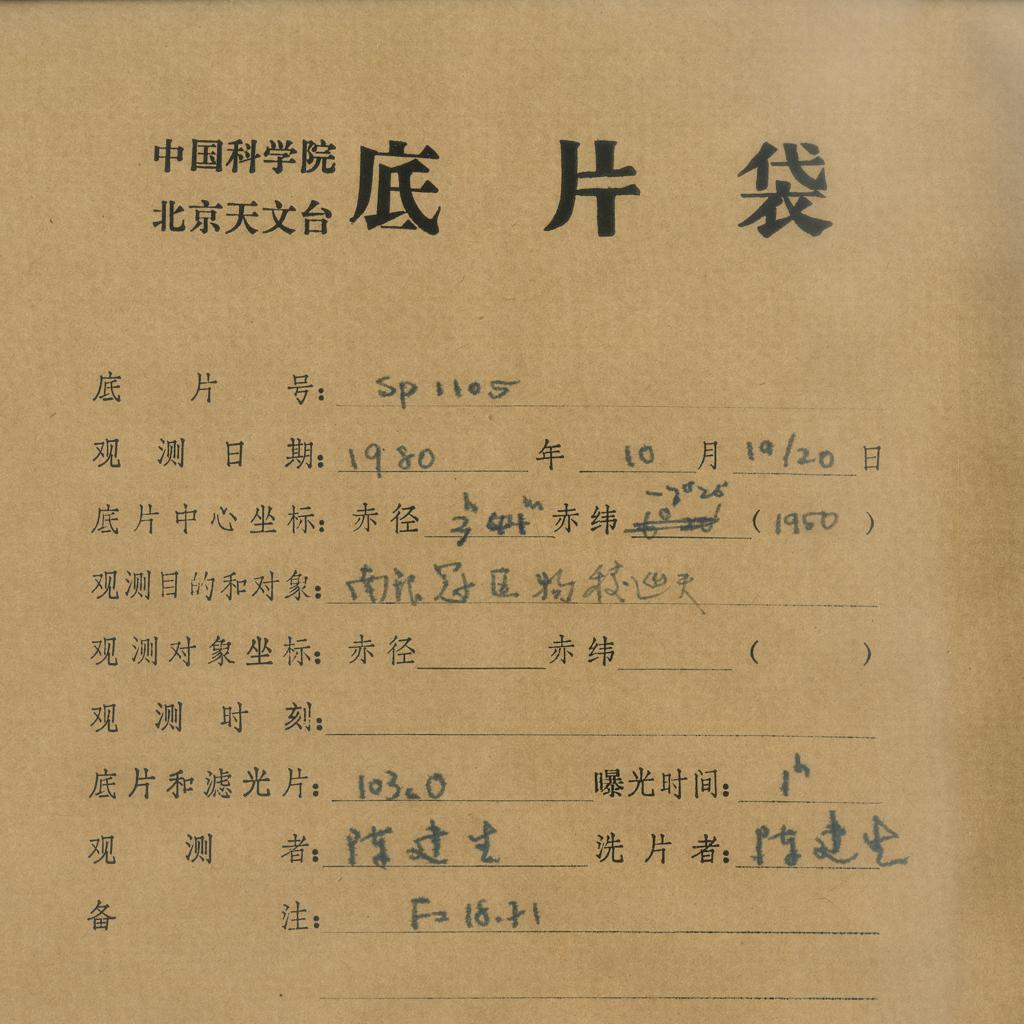 中国科学院
北京天文台
底片袋
底片号: Sp 1105
观测日期: 1980 年 10 月 19/20 日
底片中心坐标: 赤径 3h 44m 赤纬 -7°25' (1950)
观测目的和对象: 南银冠区物移巡天
观测对象坐标: 赤径 赤纬 ( )
观测时刻:
底片和滤光片: 103aO 曝光时间: 1h
观测者: 陈建生 洗片者: 陈建生
备注: F= 18.71